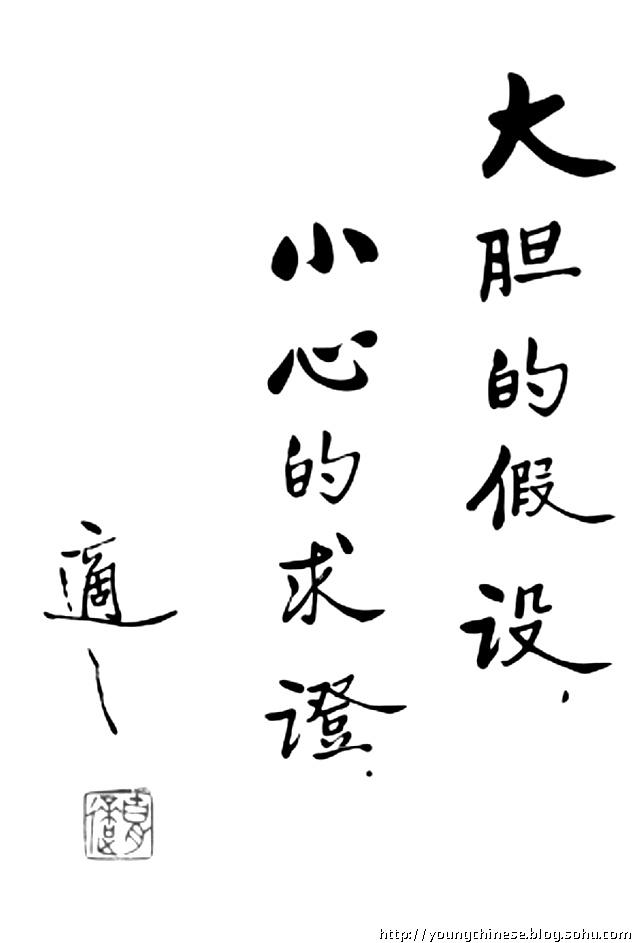 大胆的假设,
小心的求證.
適之
http://youngchinese.blog.sohu.com